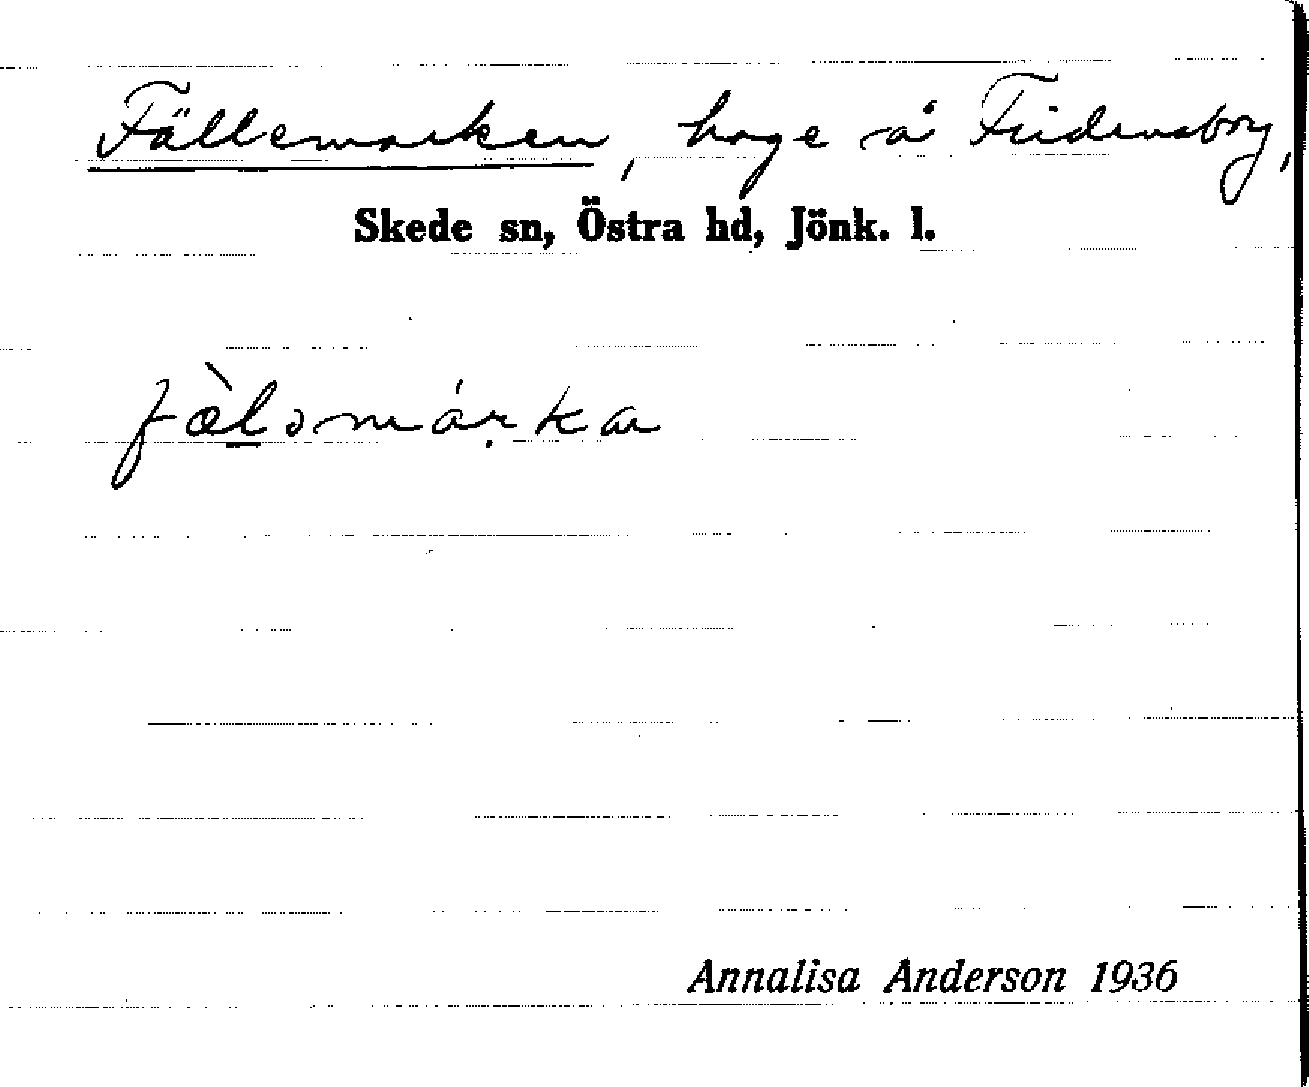 Fällemarken, hage å Fridensborg,
Skede sn, Östra hd, Jönk. l.
fæ̀l̲ɔmárka
Annalisa Anderson 1936